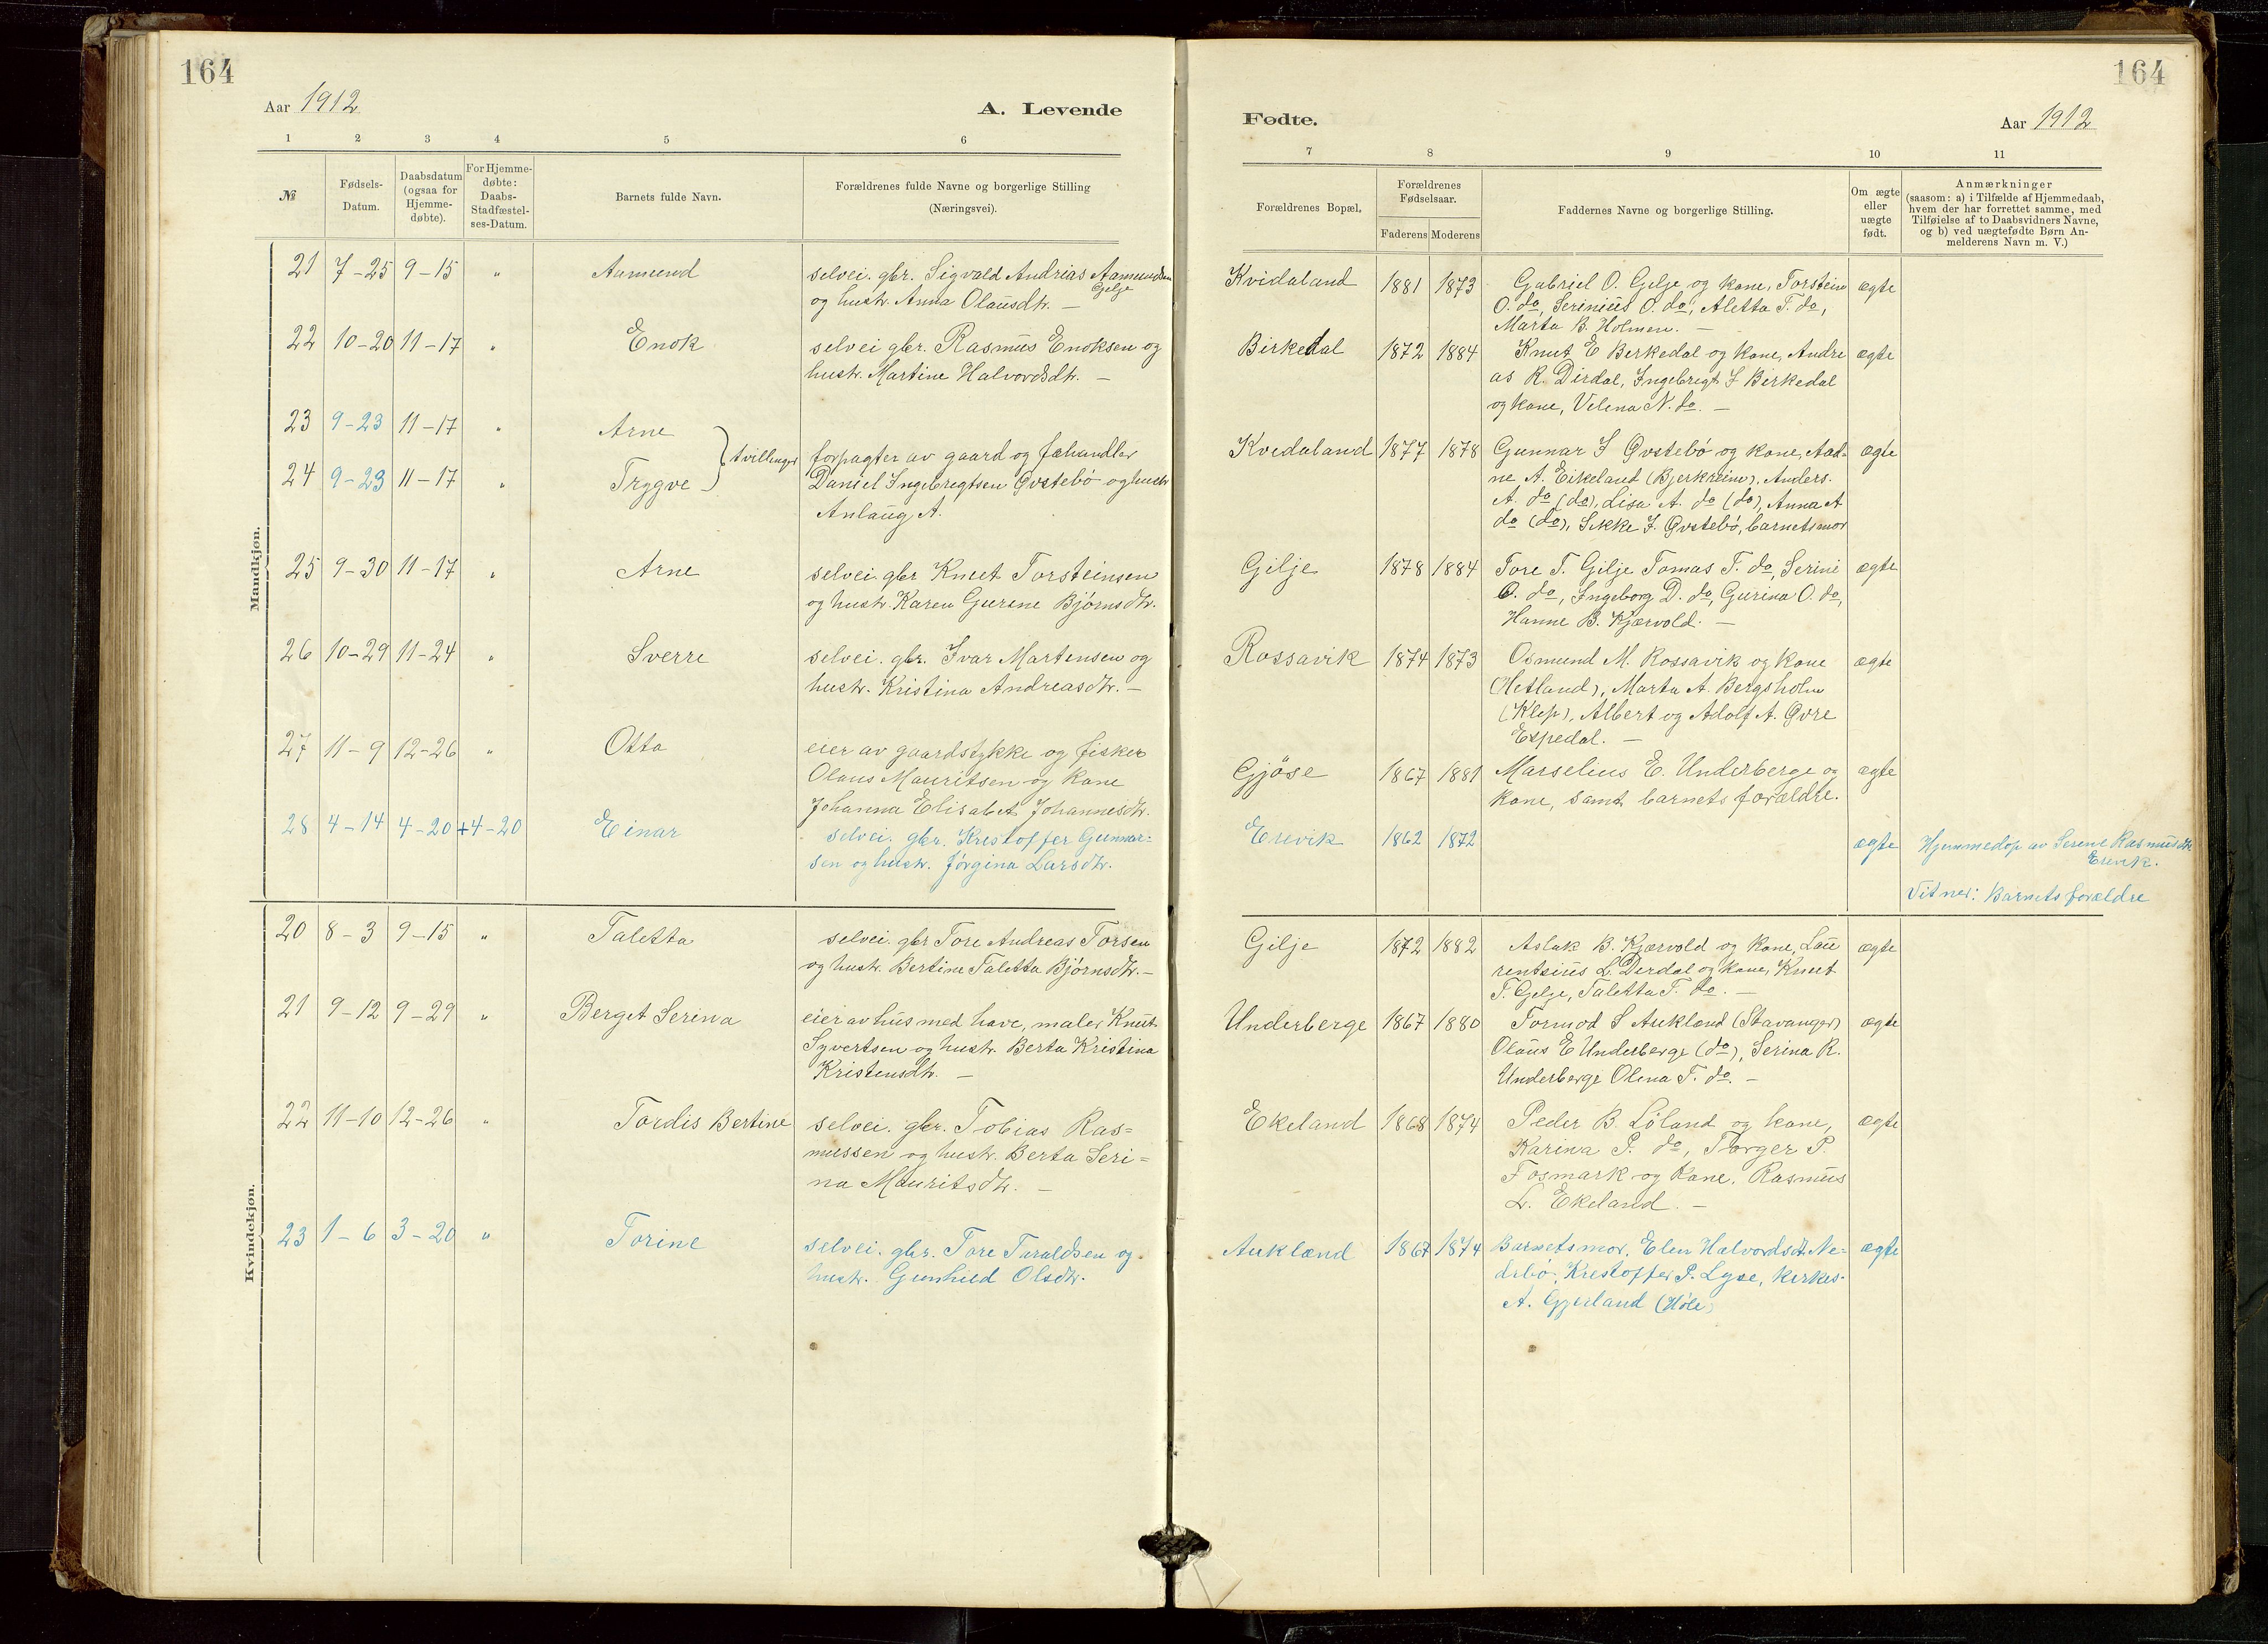 164
164
Aar 1912
A. Levende
Fødte.
Aar 1912
1 2 3 4 5 6
7 8 9 10 11
№
Fødsels-
Datum.
Daabsdatum
(ogsaa for
Hjemme-
døbte).
For Hjemme-
døbte:
Daabs-
Stadfæstel-
ses-Datum.
Barnets fulde Navn.
Forældrenes fulde Navne og borgerlige Stilling
(Næringsvei).
Forældrenes Bopæl.
Forældrenes
Fødselsaar.
Faderens Moderens
Faddernes Navne og borgerlige Stilling.
Om ægte
eller
uægte
født.
Anmærkninger
(saasom: a) i Tilfælde af Hjemmedaab,
hvem der har forrettet samme, med
Tilføielse af to Daabsvidners Navne,
og b) ved uægtefødte Børn An-
melderens Navn m. V.)
Mandkjøn.
21 7-25 9-15 " Aamund
selvei. gbr. Sigvald Andrias Aamundsen
Gilje
og hustr. Anna Olausdtr. —
Kvidaland 1881 1873
Gabriel O. Gilje og kone, Torstein
O. do, Serinius O. do, Aletta T. do,
Marta B. Holmen. —
ægte
22 10-20 11-17 " Enok
selvei gbr. Rasmus Enoksen og
hustr. Martine Halvorsdtr. —
Birkedal 1872 1884
Knut E Berkedal og kone, Andre
as R. Dirdal, Ingebrigt I Birkedal
og kone, Velena N. do. —
ægte
23 9-23 11-17 " Arne
24 9-23 11-17 " Trygve
tvillinger
forpagter av gaard og fehandler
Daniel Ingebregtsen Øvstebö og hustr
Anlaug A.
Kvidaland 1877 1878
Gunnar I Øvstebö og kone, Aad-
ne A. Eikeland (Bjerkreim), Anders.
A. do (do), Lisa A. do (do), Anna A
do (do), Sikke I. Øvstebö, barnets mor
ægte
25 9-30 11-17 " Arne
selvei. gbr Knut Torsteinsen
og hustr. Karen Gurine Bjørnsdtr.
Gilje 1878 1884
Tore T. Gilje Tomas T. do, Serine
O. do, Ingeborg D. do, Gurina O. do,
Hanne B. Kjærvold. —
ægte
26 10-29 11-24 " Sverre
selvei. gbr. Ivar Martensen og
hustr. Kristina Andreasdtr. —
Rossavik 1874 1873
Osmund M. Rossavik og kone
(Hetland), Marta A. Bergsholm
(Klep), Albert og Adolf A. Øvre
Espedal. —
ægte
27 11-9 12-26 " Otto
eier av gaardstykke og fisker
Olaus Mauritsen og kone
Johanna Elisabet Johannesdtr.
Gjöse 1867 1881
Marselius E. Underberge og
kone, samt barnets forældre.
ægte
28 4-14 4-20 +4-20 Einar
selvei. gbr. Kristoffer Gunnar-
sen og hustr. Jörgina Larsdtr.
Erevik 1862 1872
ægte
Hjemmedöp av Serene Rasmusdtr
Erevik.
Vitner: Barnets forældre
Kvindekjøn.
20 8-3 9-15 " Taletta
selvei. gbr Tore Andreas Torsen
og hustr. Bertine Taletta Björnsdtr. —
Gilje 1872 1882
Aslak B. Kjærvold og kone, Lau
rentsius L. Derdal og kone, Knut
T. Gilje, Taletta T. do. —
ægte
21 9-12 9-29 " Berget Serina
eier av hus med have, maler Knut
Syvertsen og hustr. Berta Kristina
Kristensdtr. —
Underberge 1867 1880
Tormod S Aukland (Stavanger)
Olaus E Underberge (do), Serina R.
Underberge Olena T. do. —
ægte
22 11-10 12-26 " Tordis Bertine
selvei. gbr. Tobias Ras=
mussen og hustr. Berta Seri=
na Mauritsdtr. —
Ekeland 1868 1874
Peder B. Löland og kone,
Karina P. do, Torger P.
Fosmark og kone. Rasmus
L. Ekeland. —
ægte
23 1-6 3-20 " Torine
selvei. gbr. Tore Taraldsen og
hustr. Gunhild Olsdtr.
Aukland 1867 1874
Barnets mor, Elen Halvordsdtr. Ne-
debö, Kristoffer P. Lyse,
A. Gjeiland (Höle)
ægte